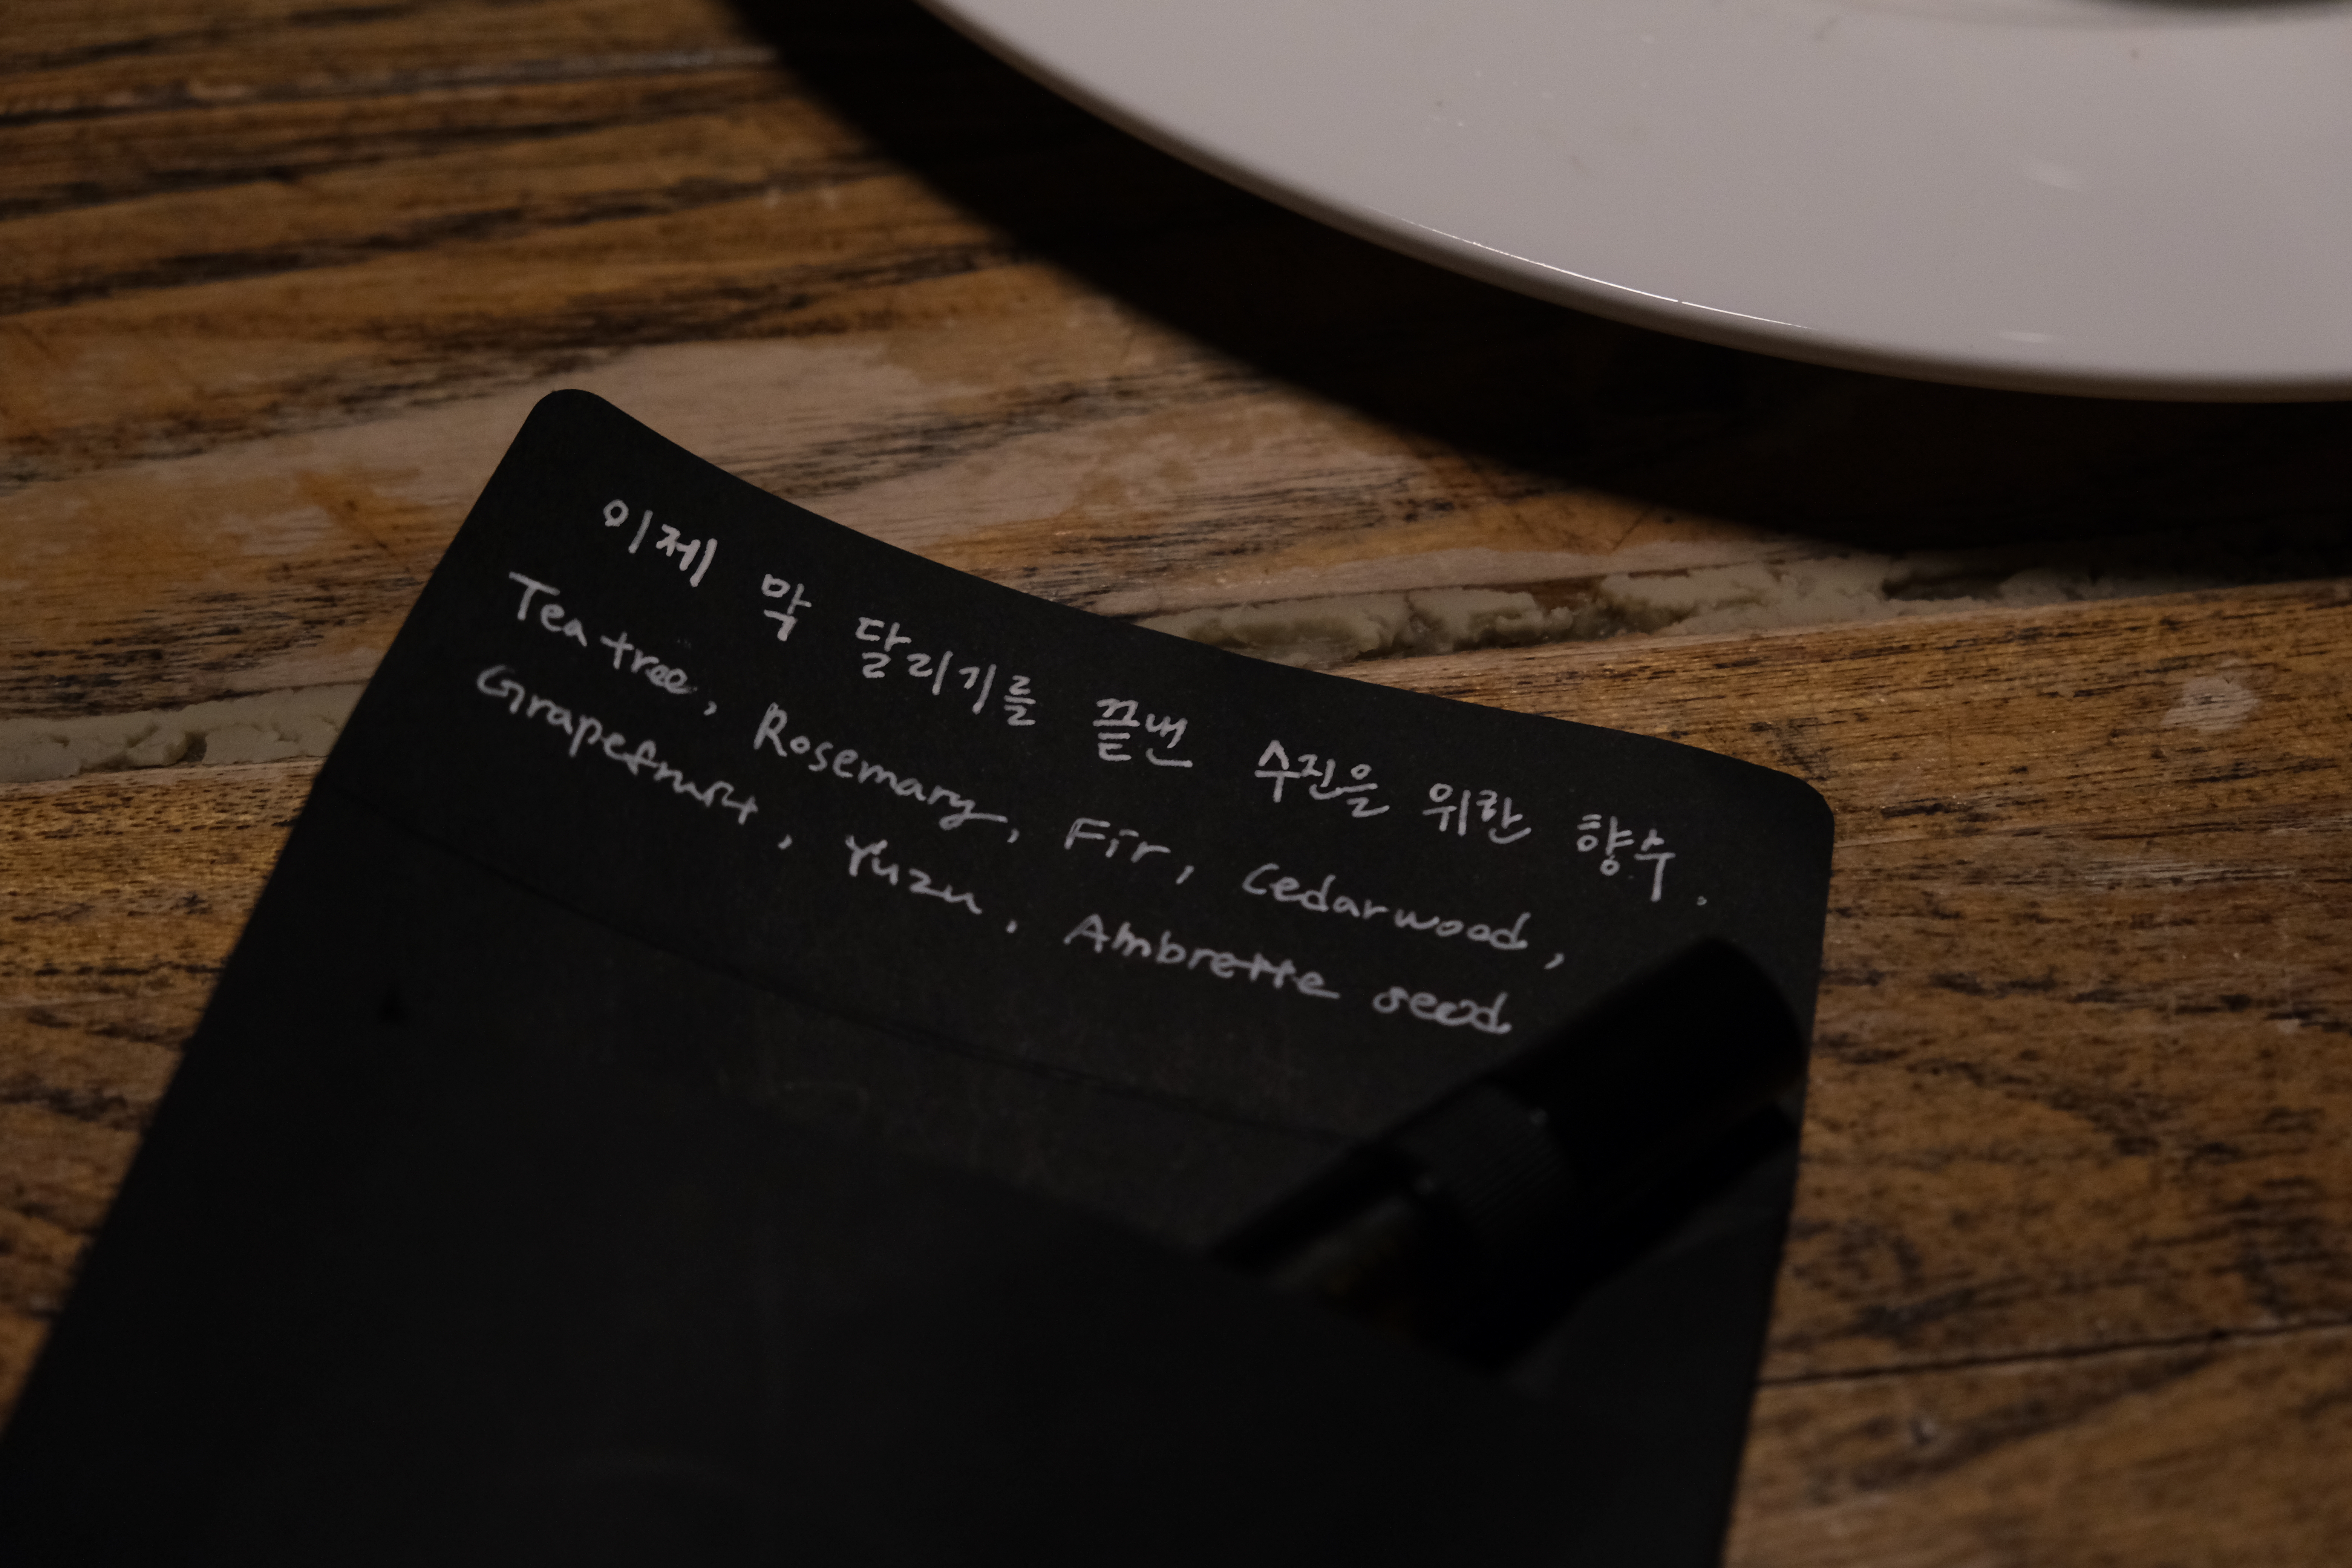 이제 막 달리기를 끝낸 수진을 위한 향수.
Tea tree, Rosemary, Fir, Cedarwood,
Grapefruit, Yuzu, Ambrette seed